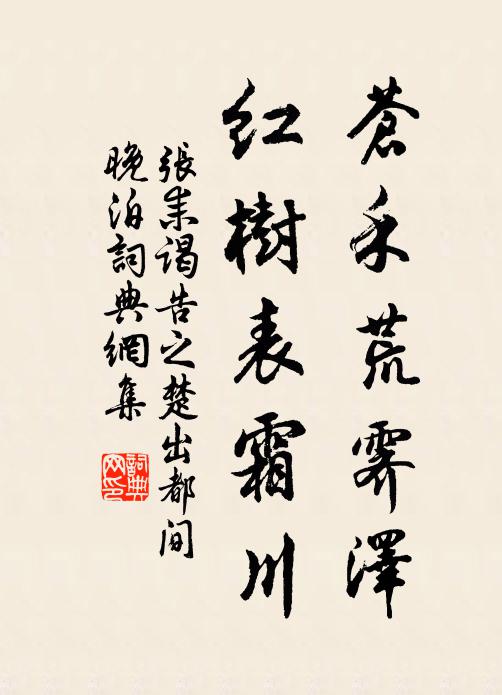 蒼禾荒霽澤
紅樹表霜川
張耒謁告之楚出都間
晚泊詞典網集
詞典網印